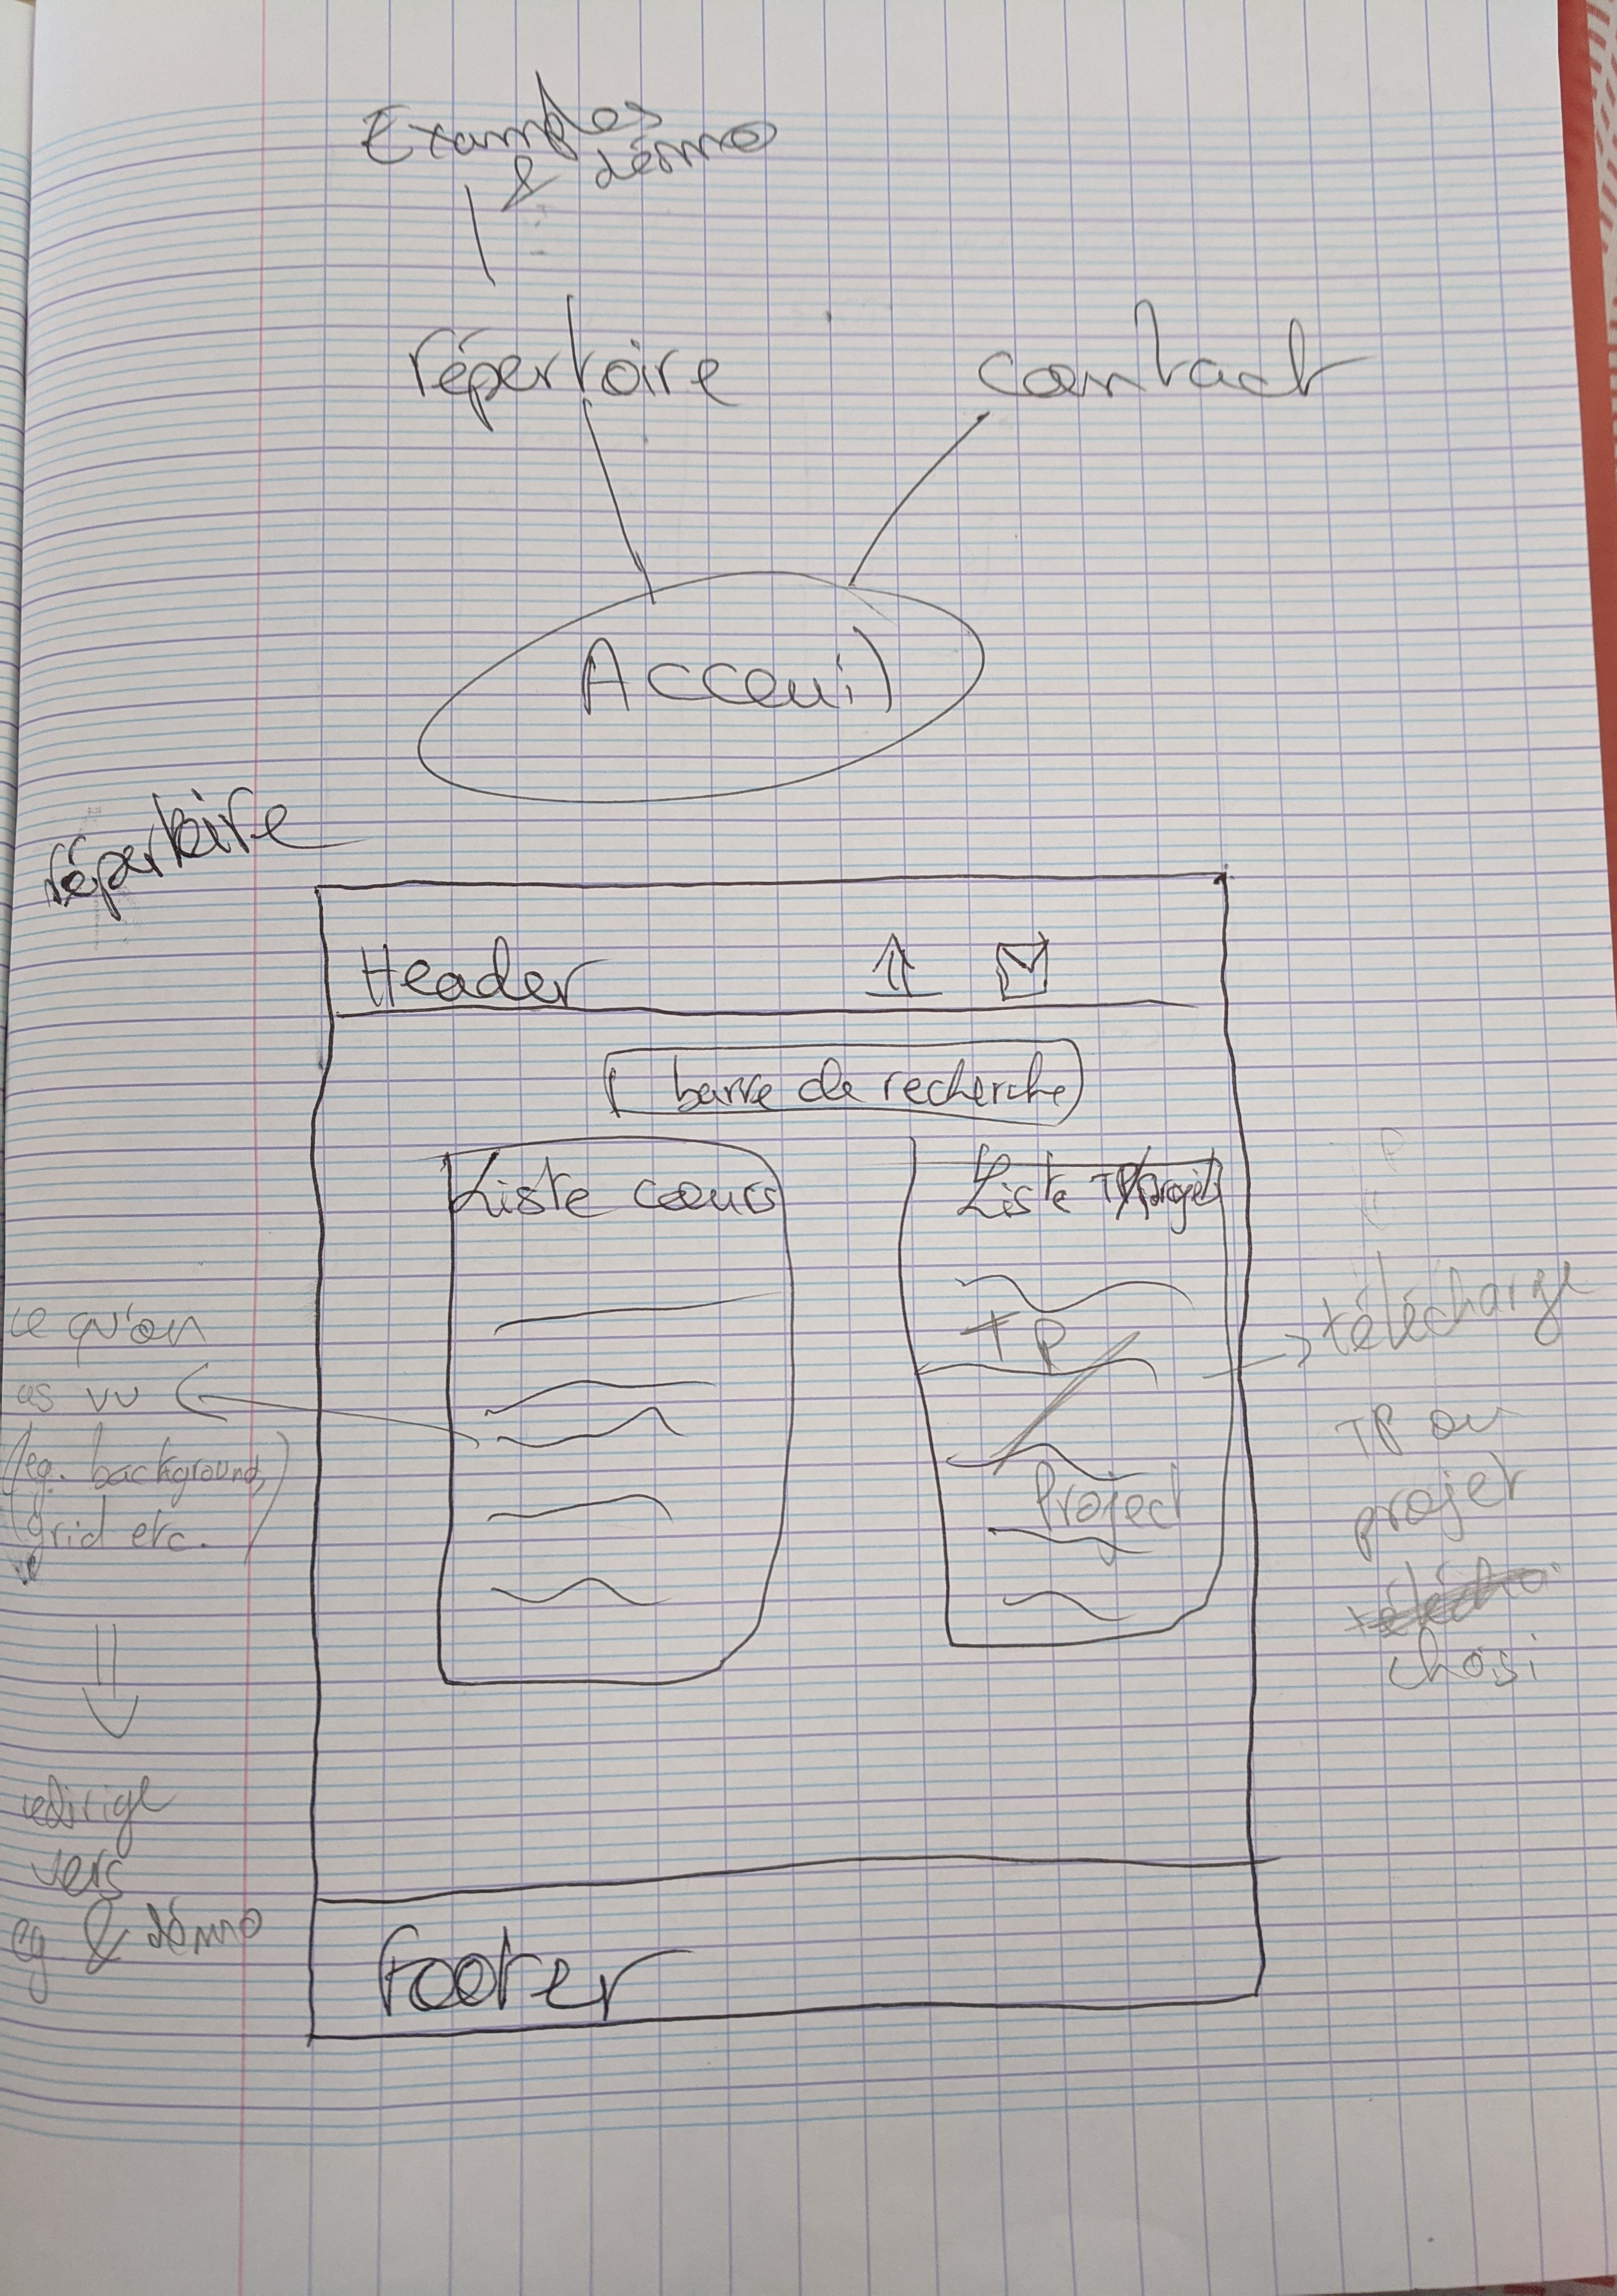 Examples
& démo
répertoire
contact
Acceuil
répertoire
Header
barre de recherche
Liste cours
Liste TP/projets
TP
Project
ce qu'on
as vu
(eg. background,
grid etc.)
redirige
vers
eg & démo
télécharge
TP ou
projet
choisi
Footer